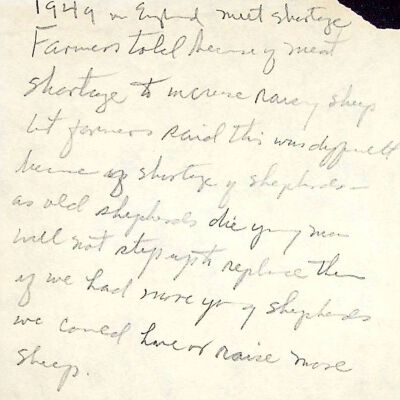 1949 in England meat shortage
Farmers told because of meat
shortage to increase raising sheep
but farmers said this was difficult
because of shortage of shepherds –
as old shepherds die young men
will not step up to replace them
if we had more young shepherds
we could have or raise more
sheep.